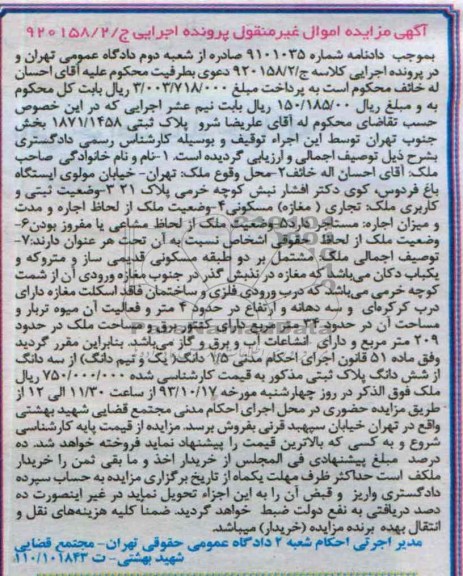 آگهی مزایده اموال غیرمنقول پرونده اجرایی ج/۹۲۰۱۵۸/۲
بموجب دادنامه شماره ۹۱۰۱۰۳۵ صادره از شعبه دوم دادگاه عمومی تهران و
در پرونده اجرایی کلاسه ج/۹۲۰۱۵۸/۲ دعوی بطرفیت محکوم علیه آقای احسان
له خائف محکوم است به پرداخت مبلغ ۳/۰۰۳/۷۱۸/۰۰۰ ریال بابت کل محکوم
به و مبلغ ریال ۱۵۰/۱۸۵/۰۰ ریال بابت نیم عشر اجرایی که در این خصوص
حسب تقاضای محکوم له آقای علریضا شرو پلاک ثبتی ۱۸۷۱/۱۴۵۸ بخش
جنوب تهران توسط این اجراء توقیف و بوسیله کارشناس رسمی دادگستری
بشرح ذیل توصیف اجمالی و ارزیابی گردیده است. ۱-نام و نام خانوادگی صاحب
ملک: آقای احسان اله خائف۲-محل وقوع ملک: تهران- خیابان مولوی ایستگاه
باغ فردوس، کوی دکتر افشار نبش کوچه خرمی پلاک ۲۱ ۳-وضعیت ثبتی و
کاربری ملک: تجاری ( مغازه) مسکونی۴-وضعیت ملک از لحاظ اجاره و مدت
و میزان اجاره: مستاجر دارد۵ وضعیت ملک از لحاظ مشاعی یا مفروز بودن۶-
وضعیت ملک از لحاظ حقوقی اشخاص نسبت به آن تحت هر عنوان دارند:۷-
توصیف اجمالی ملک مشتمل بر دو طبقه مسکونی قدیمی ساز و متروکه و
یکباب دکان می‌باشد که مغازه در نذبش گذر در جنوب مغازه ورودی آن از شمت
کوچه خرمی می‌باشد که درب ورودی فلزی و ساختمان فاقد اسکلت مغازه دارای
درب کرکره‌ای و سه دهانه و ارتفاع در حدود ۴ متر و فعالیت آن میوه تربار و
مساحت آن در حدود متر مربع دارای کنتور برق و مساحت ملک در حدود
۲۰۹ متر مربع و دارای انشاعات آب و برق و گاز می‌باشد. بنابراین مقرر گردید
وفق ماده ۵۱ قانون اجرای احکام مدنی ۱/۵ دانگ( یک و نیم دانگ) از سه دانگ
از شش دانگ پلاک ثبتی مذکور به قیمت کارشناسی شده ۷۵۰/۰۰۰/۰۰۰ ریال
ملک فوق الذکر در روز چهارشنبه مورخه ۹۳/۱۰/۱۷ از ساعت ۱۱/۳۰ الی ۱۲ از
طریق مزایده حضوری در محل اجرای احکام مدنی مجتمع قضایی شهید بهشتی
واقع در تهران خیابان سپهبد قرنی بفروش برسد. مزایده از قیمت پایه کارشناسی
شروع و به کسی که بالاترین قیمت را پیشنهاد نماید فروخته خواهد شد. ده
درصد مبلغ پیشنهادی فی المجلس از خریدار اخذ و ما بقی ثمن را خریدار
ملکف است حداکثر ظرف مهلت یکماه از تاریخ برگزاری مزایده به حساب سپرده
دادگستری واریز و قبض آن را به این اجراء تحویل نماید در غیر اینصورت ده
دصد دریافتی به نفع دولت ضبط خواهد گردید. ضمنا کلیه هزینه‌های نقل و
انتقال بهده برنده مزایده (خریدار) میباشد.
مدیر اجرئی احکام شعبه ۲ دادگاه عمومی حقوقی تهران- مجتمع قضایی
شهید بهشتی- ت ۱۱۰/۱۰۱۸۴۳